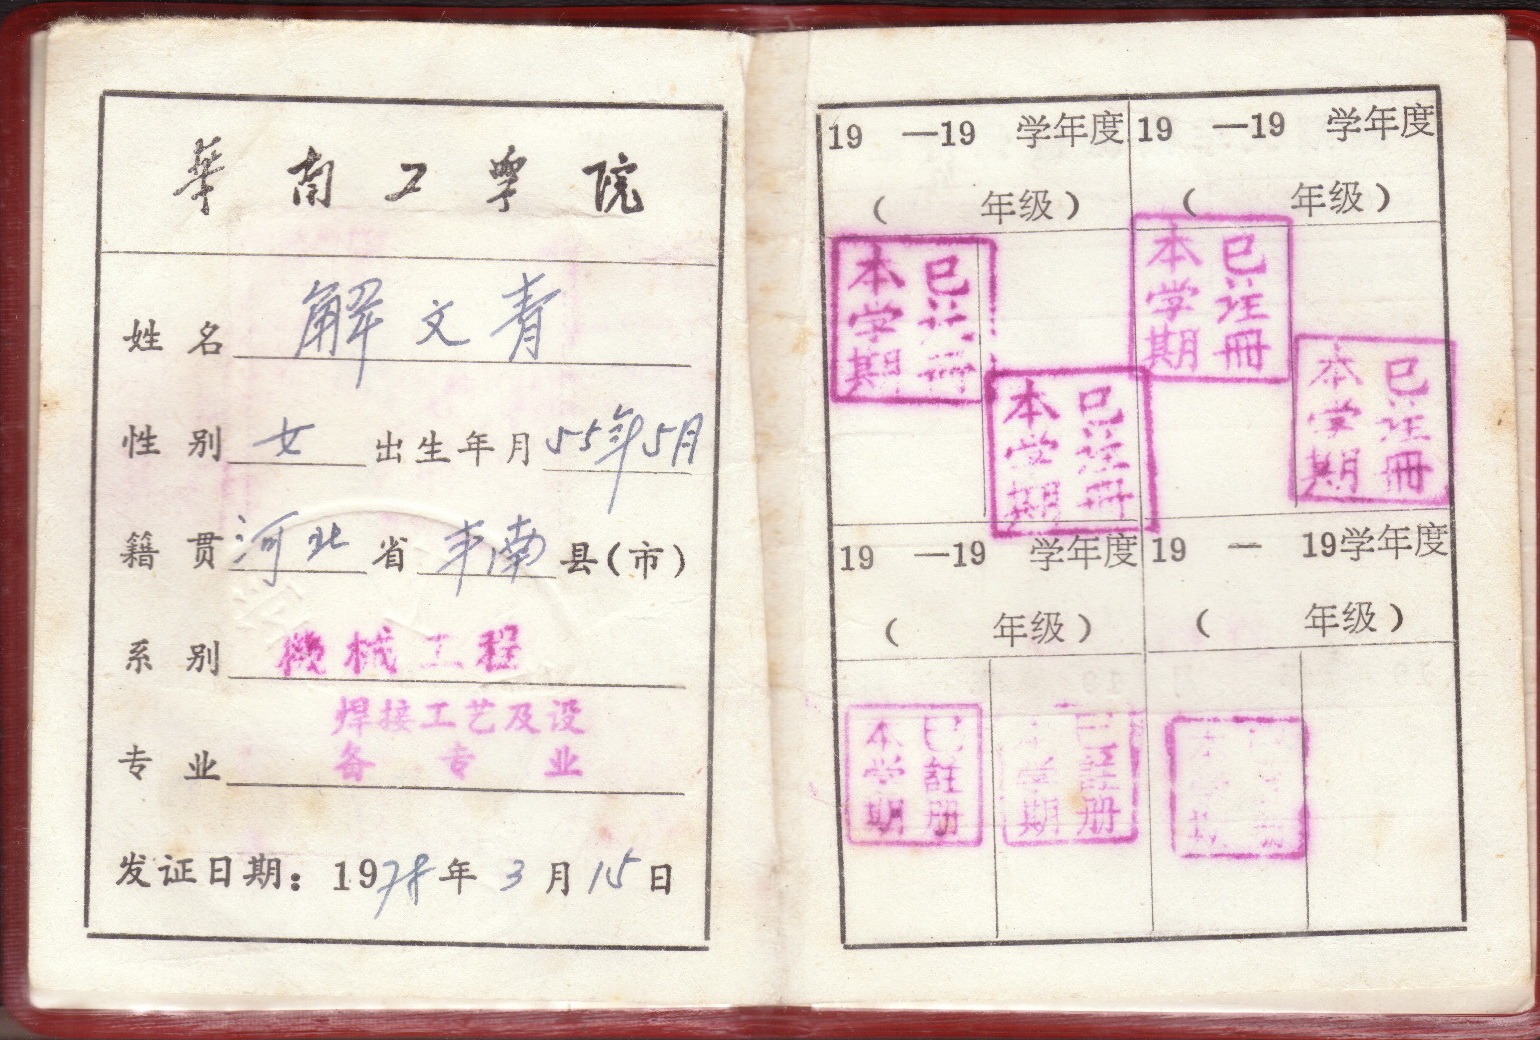 華南工学院
姓 名 解文青
性 别 女 出生年月 55年5月
籍 贯 河北 省 丰南 县(市)
系 别 機械工程
专 业 焊接工艺及设
备 专 业
发证日期：1978年 3 月 15 日
19 —19 学年度
( 年级)
本学期
已注冊
本学期
已注冊
19 —19 学年度
( 年级)
本学期
已注冊
本学期
已注冊
19 —19 学年度
( 年级)
本学期
已註册
本学期
已註册
19 — 19学年度
( 年级)